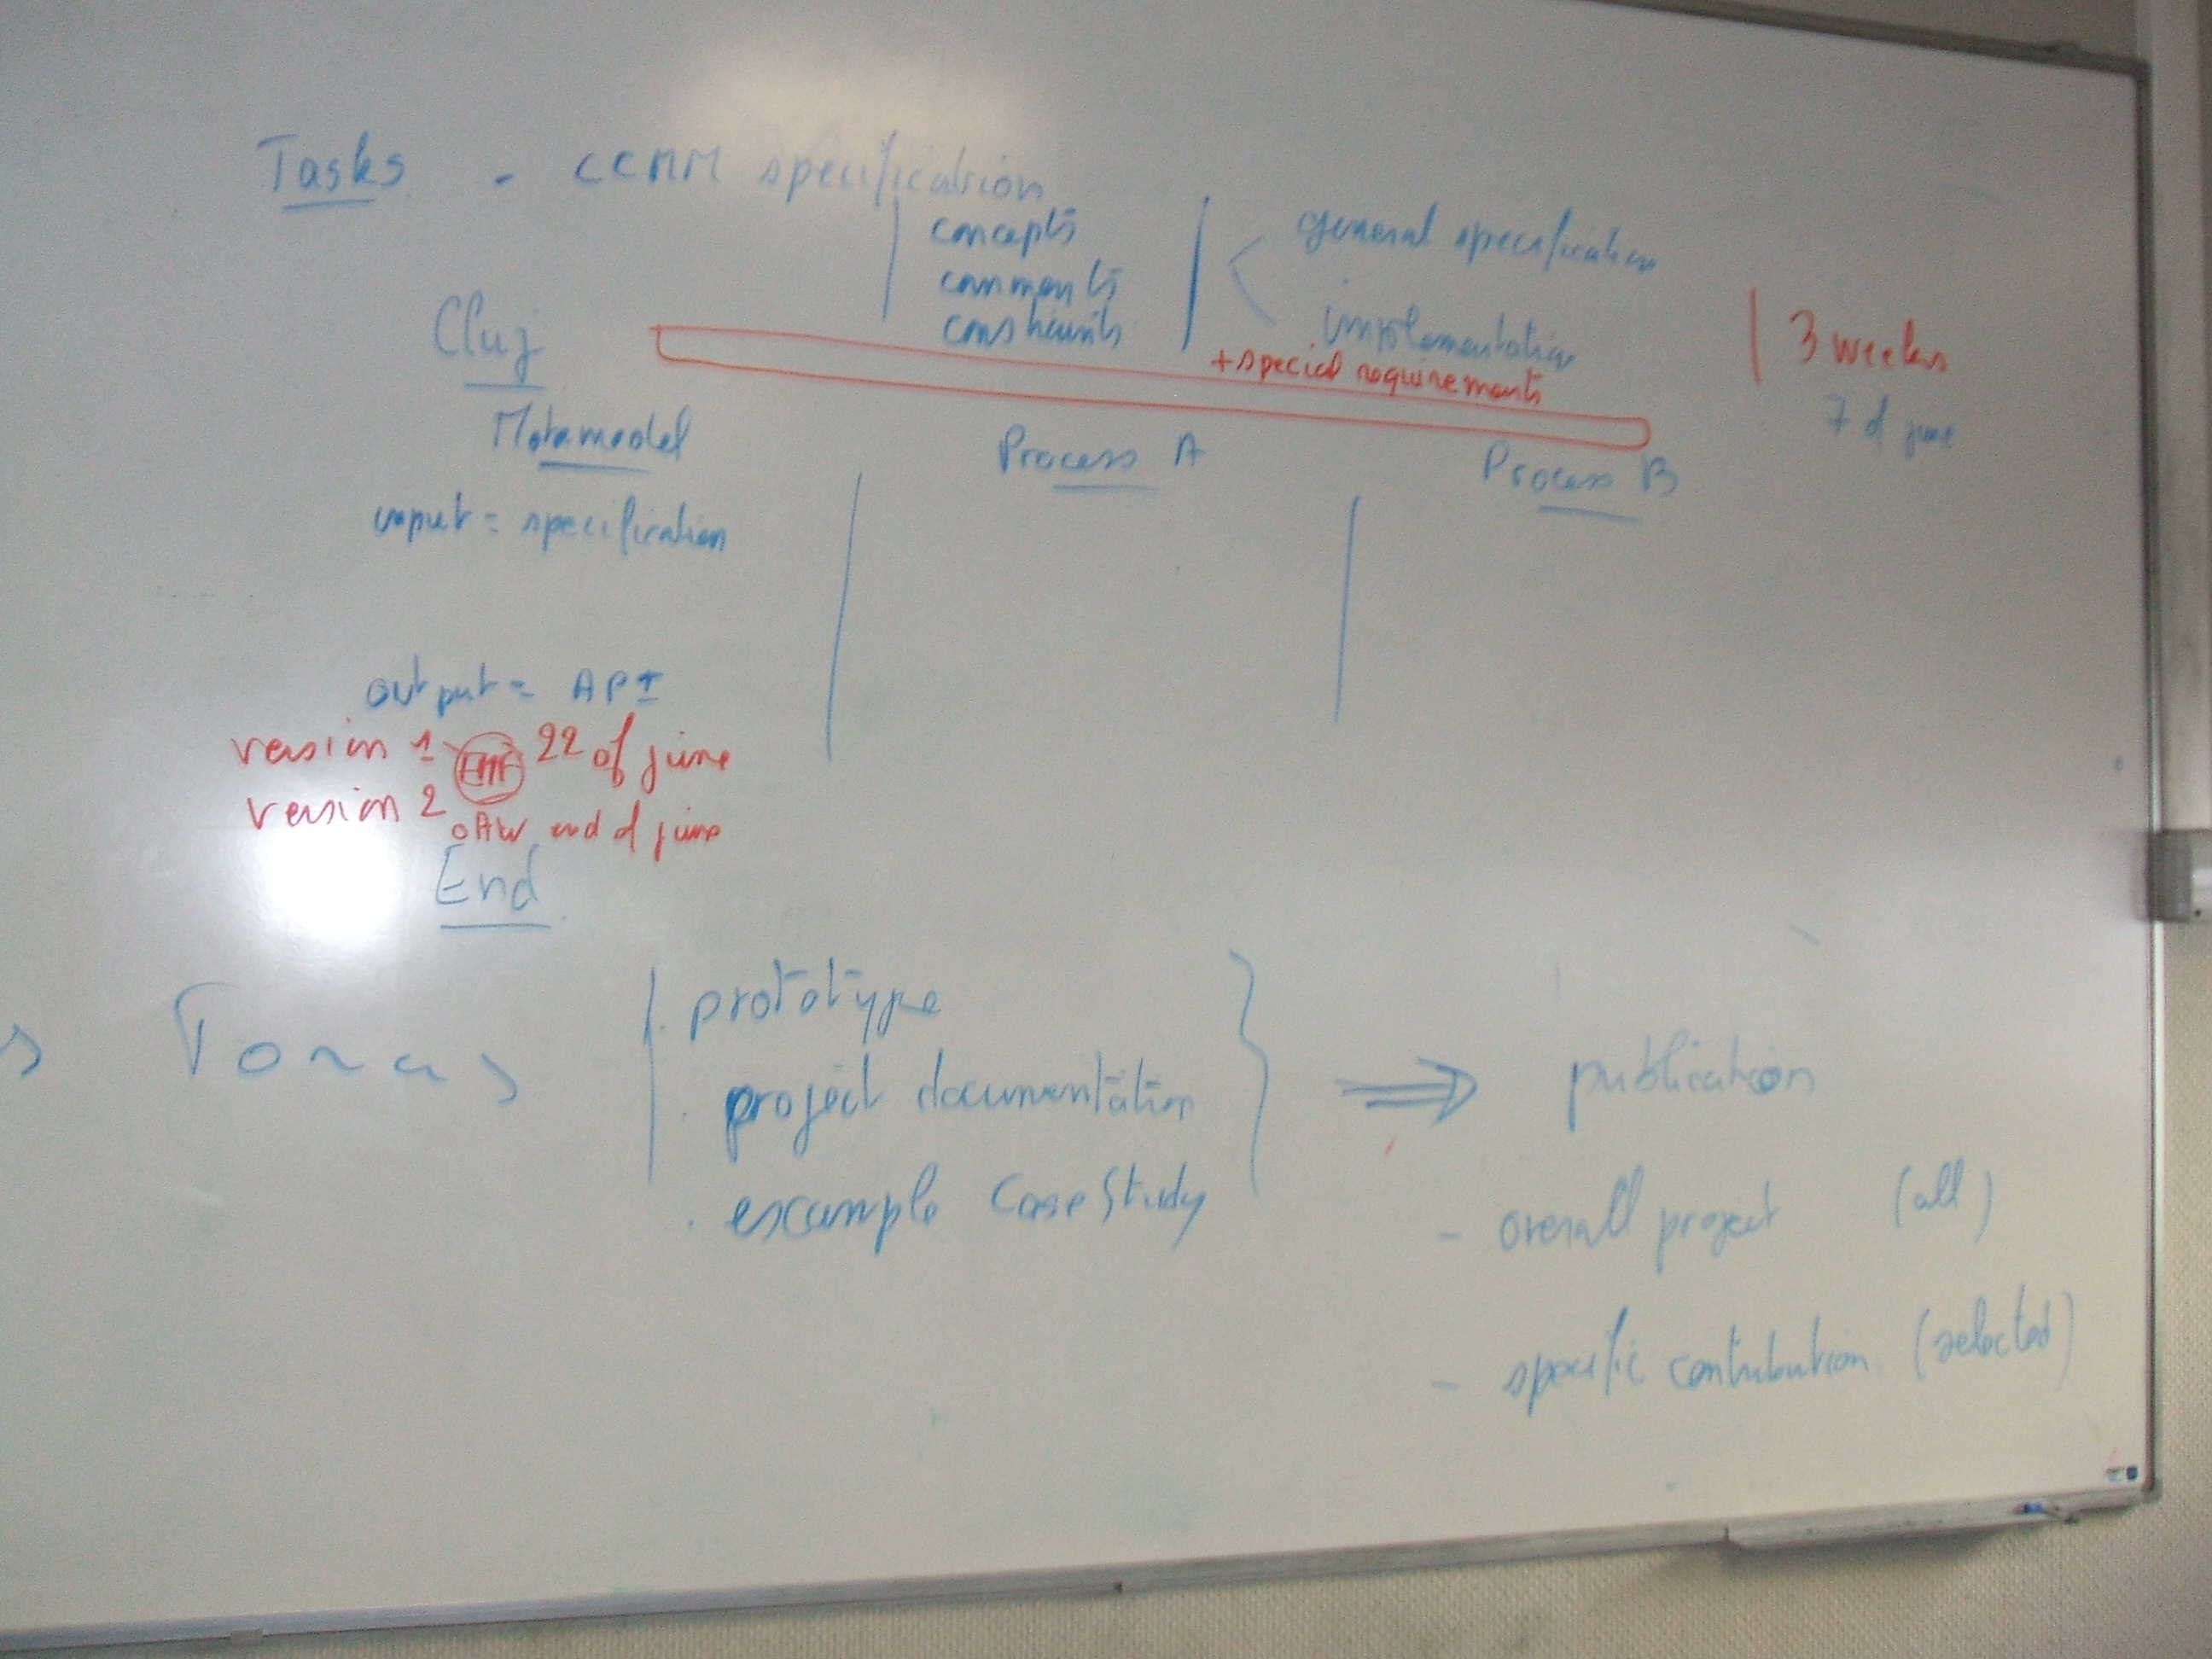 Tasks - CCMM specification
concepts
comments
constraints
general specification
implementation
+ special requirements
3 weeks
7 of june
Cluj
Metamodel
Process A
Process B
input = specification
output = API
version 1 EMF 22 of june
version 2 oAW end of june
End
. prototype
. project documentation
. example case study
⇒ publication
- overall project (all)
- specific contribution (selected)